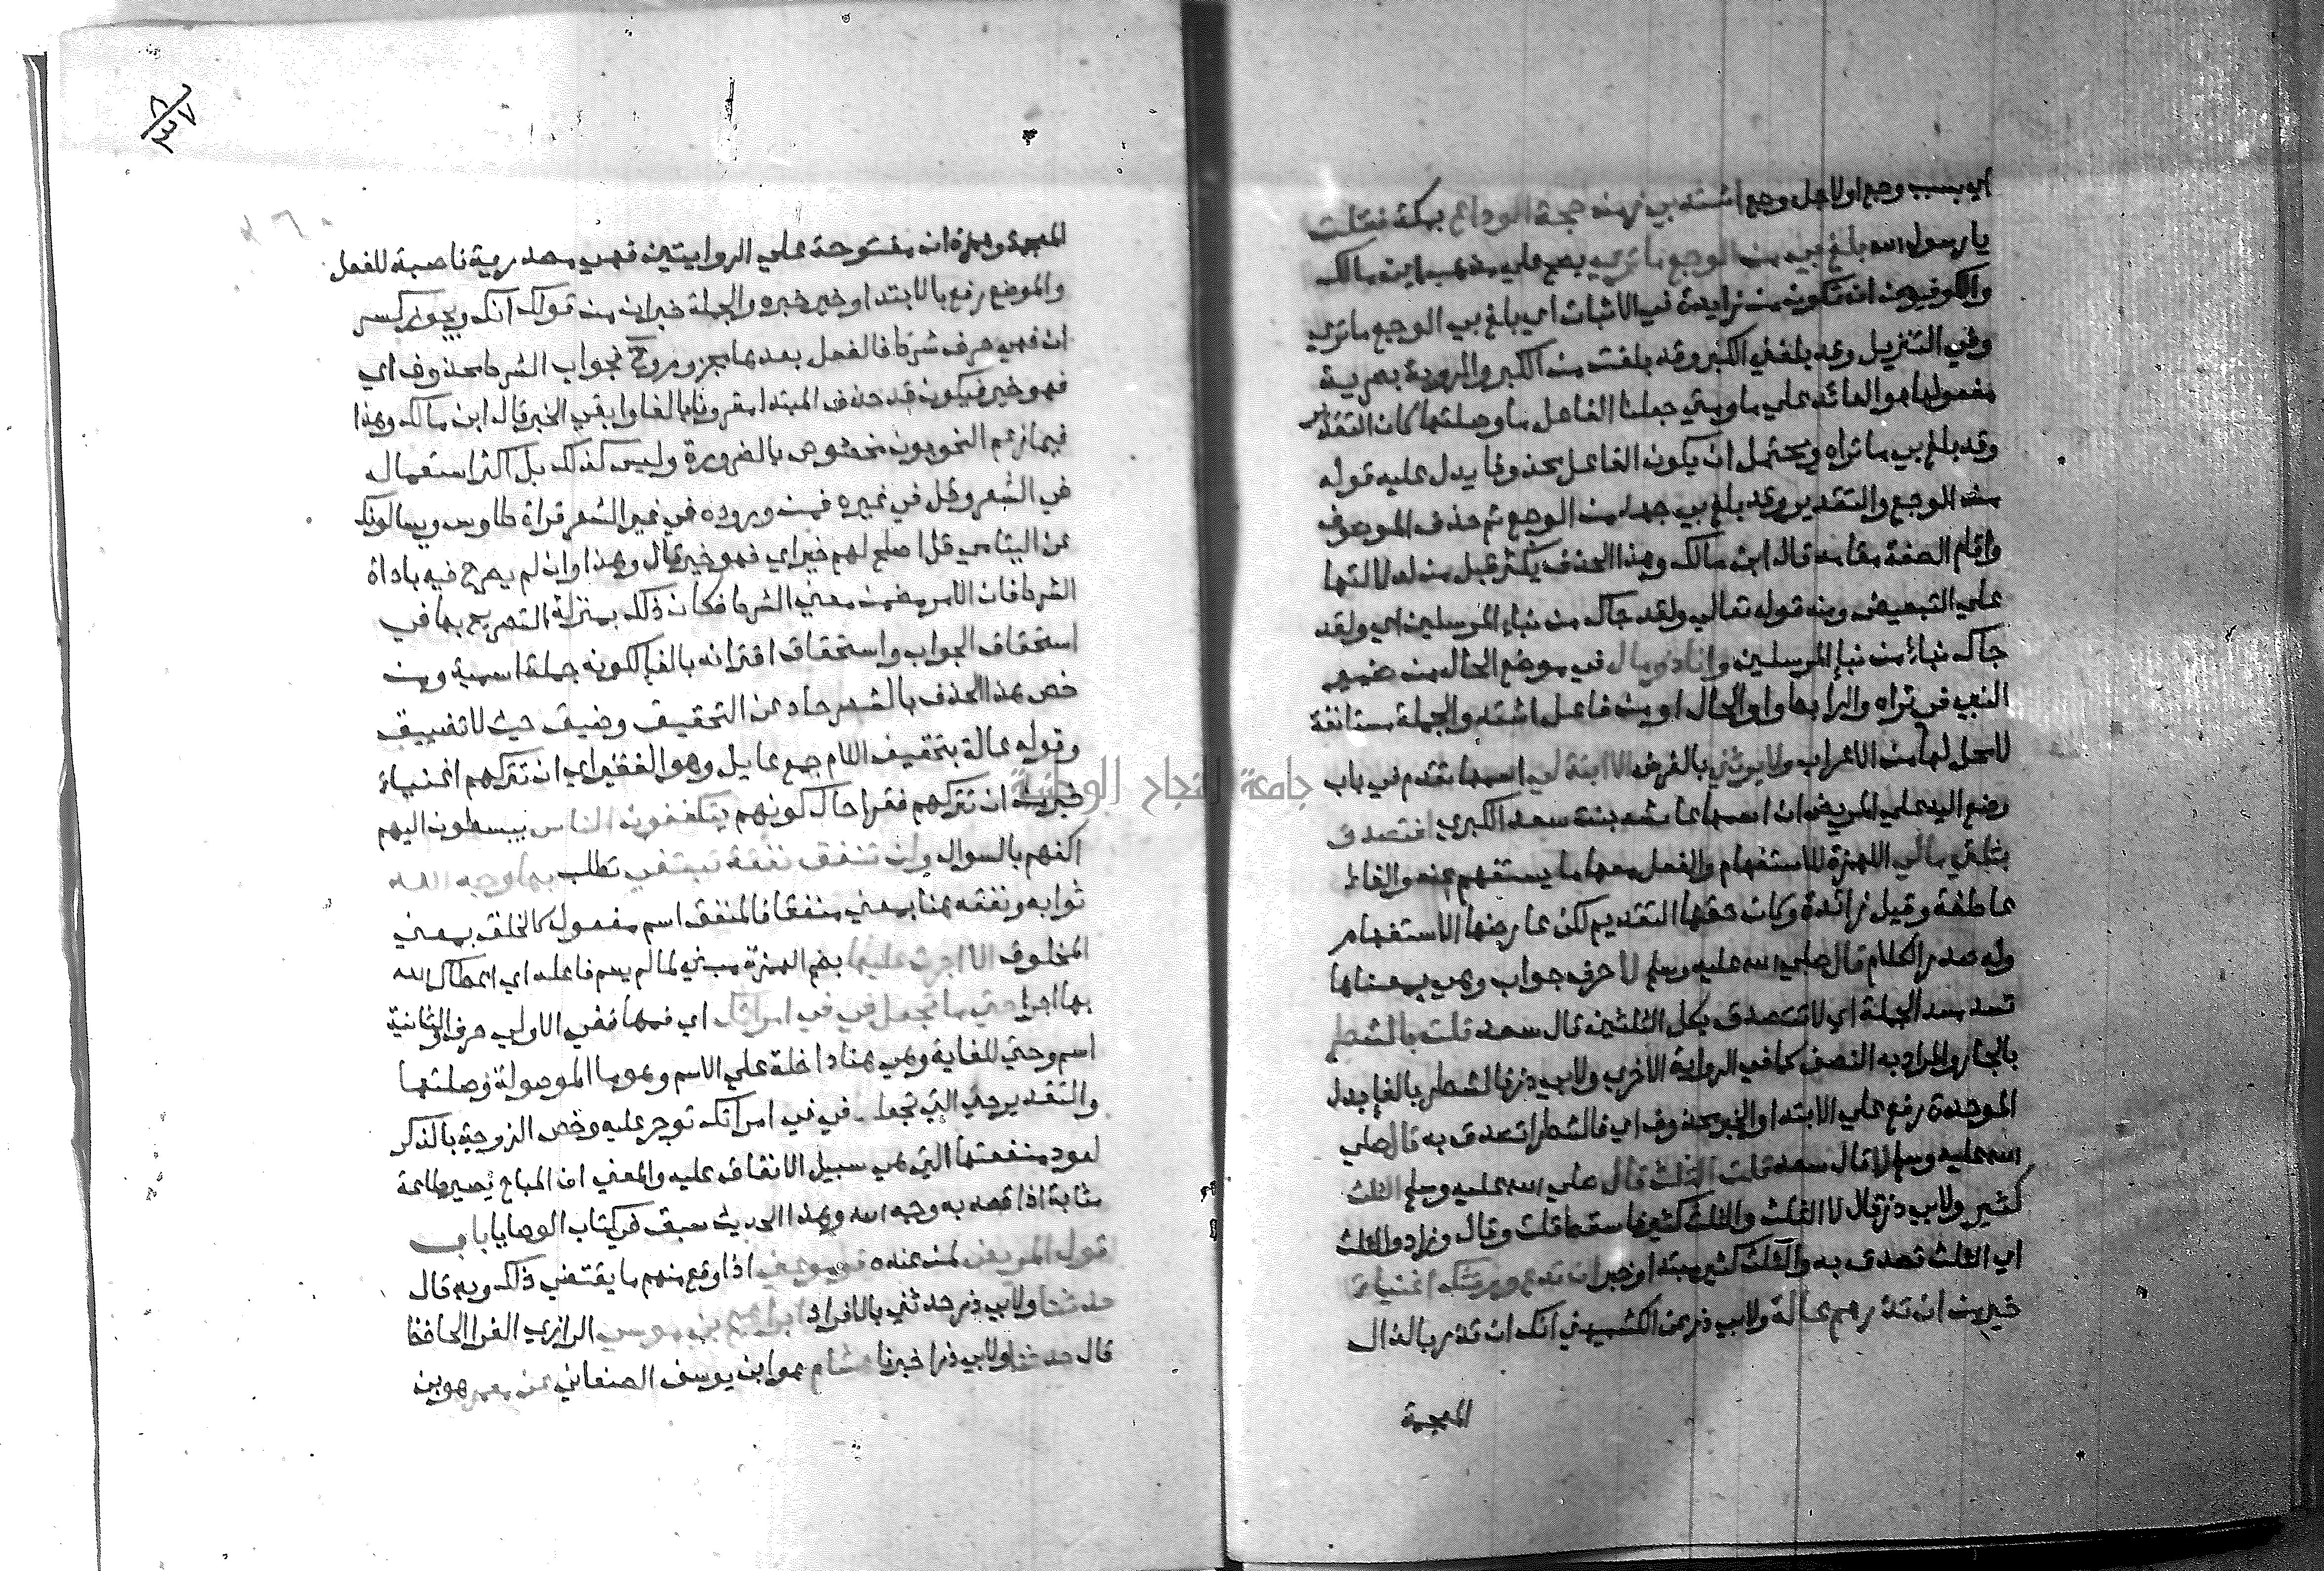 اي بسبب وجع اولاجل وجع اشتد بي زمن حجة الوداع بمكة فقلت
يا رسول الله بلغ بي من الوجع ما تري يصح علي مذهب ابن مالك
والكوفيين ان تكون من زايدة في الاثبات اي بلغ بي الوجع ما تري
وفي التنزيل وقد بلغني الكبر وقد بلغت من الكبر والروية بصرية
مفعولها هو العائد علي ما وحتي جعلنا الفاعل ما وصلتها كان التقدير
وقد بلغ بي ما تراه ويحتمل ان يكون الفاعل محذوفا يدل عليه قوله
من الوجع والتقدير وقد بلغ بي جهد من الوجع ثم حذف الموصوف
واقام الصفة مقامه قال ابن مالك وهذا الحذف يكثر قبل من لدلالتها
علي التبعيض ومنه قوله تعالي ولقد جاك من نباء المرسلين اي ولقد
جاك نباء من نبإ المرسلين وانا ذو مال في موضع الحال من ضمير
النبي في تراه والرابط واو الحال او من فاعل اشتد والجملة مستانفة
لا محل لها من الاعراب ولا يرثني بالفرض الا ابنة لي اسمها تقدم في باب
وضع اليد علي المريض ان اسمها عائشة بنت سعد الكبري افتصدق
بثلثي مالي الهمزة للاستفهام والفعل معها ما يستفهم عنه والفاء
عاطفة وقيل زائدة وكان حقها التقديم لكن عارضها الاستفهام
وله صدر الكلام قال صلي الله عليه وسلم لا حرف جواب وهي بمعناها
تسد مسد الجملة اي لا تتصدق بكل الثلثين قال سعد قلت بالشطر
بالجار والمراد به النصف كما في الرواية الاخري ولابي ذر فالشطر بالفا بدل
الموحدة رفع علي الابتدا والخبر محذوف اي فالشطر اتصدق به قال صلي
الله عليه وسلم لا قال سعد قلت الثلث قال صلي الله عليه وسلم الثلث
كثير ولابي ذر قال لا الثلث والثلث كثير فاسقط قلت وقال وزاد والثلث
اي الثلث تصدق به والثلث كثير مبتدا وخبر ان تدع ورثتك اغنياء
خير من ان تذرهم عالة ولابي ذر عن الكشميهني انك ان تذر بالذال
المعجمة
المعجمة وهمزة ان مفتوحة علي الروايتين فهي مصدرية ناصبة للفعل
والموضع رفع بالابتدا وخير خبره والجملة خبر ان من قولك انك ويجوز كسر
ان فهي حرف شرط فالفعل بعدها مجزوم وح فجواب الشرط محذوف اي
فهو خير فيكون قد حذف المبتدا مقرونا بالفا وابقي الخبر قال ابن مالك وهذا
فيما زعم النحويون مخصوص بالضرورة وليس كذلك بل اكثر استعماله
في الشعر وقل في غيره فمن وروده في غير الشعر قراة طاوس ويسالونك
عن اليتامي قل اصلح لهم خير اي فهو خير قال وهذا وان لم يصرح فيه باداة
الشرط فان الامر مضمن معني الشرط فكان ذلك بمنزلة التصريح بها في
استحقاق الجواب واستحقاق اقترانه بالفا لكونه جملة اسمية ومن
خص هذا الحذف بالشعر حاد عن التحقيق وضيق حيث لا تضييق
وقوله عالة بتخفيف اللام جمع عايل وهو الفقير اي ان تتركهم اغنياء
خير من ان تتركهم فقرا حال كونهم يتكففون الناس يبسطون اليهم
اكفهم بالسوال ولن تنفق نفقة تبتغي تطلب بها وجه الله
ثوابه ونفقه هنا بمعني منفقا فالمنفق اسم مفعول كالخلق بمعني
المخلوق الا اجرت عليها بضم الهمزة مبني لما لم يسم فاعله اي اعطاك الله
بها اجرا حتي ما تجعل في في امراتك اي فمها ففي الاولي حرف والثانية
اسم وحتي للغاية وهي هنا داخلة علي الاسم وهو ما الموصولة وصلتها
والتقدير حتي التي تجعل في في امراتك توجر عليه وخص الزوجة بالذكر
لعود منفعتها التي هي سبيل الانفاق عليه والمعني ان المباح يصير طاعة
مثابة اذا قصد به وجه الله وهذا الحديث سبق في كتاب الوصايا باب
قول المريض لمن عنده قوموا عني اذا وقع منهم ما يقتضي ذلك وبه قال
حدثنا ولابي ذر حدثني بالافراد ابراهيم بن موسي الرازي الفرا الحافظ
قال حدثنا ولابي ذر اخبرنا هشام هو ابن يوسف الصنعاني عن معمر هو بن
جامعة النجاح الوطنية